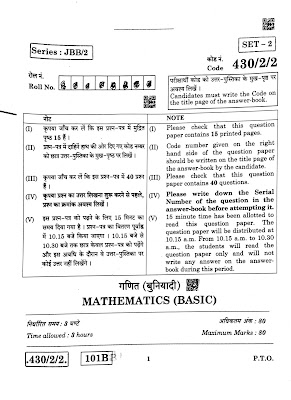 SET – 2
Series : JBB/2
कोड नं.
Code
430/2/2
रोल नं.
Roll No.
परीक्षार्थी कोड को उत्तर-पुस्तिका के मुख-पृष्ठ पर
अवश्य लिखें ।
Candidates must write the Code on
the title page of the answer-book.
नोट
NOTE
(I) कृपया जाँच कर लें कि इस प्रश्न-पत्र में मुद्रित
पृष्ठ 15 हैं ।
(I) Please check that this question
paper contains 15 printed pages.
(II) प्रश्न-पत्र में दाहिने हाथ की ओर दिए गए कोड नम्बर
को छात्र उत्तर-पुस्तिका के मुख-पृष्ठ पर लिखें ।
(II) Code number given on the right
hand side of the question paper
should be written on the title page of
the answer-book by the candidate.
(III) कृपया जाँच कर लें कि इस प्रश्न-पत्र में 40 प्रश्न
हैं ।
(III) Please check that this question
paper contains 40 questions.
(IV) कृपया प्रश्न का उत्तर लिखना शुरू करने से पहले,
प्रश्न का क्रमांक अवश्य लिखें ।
(IV) Please write down the Serial
Number of the question in the
answer-book before attempting it.
(V) इस प्रश्न-पत्र को पढ़ने के लिए 15 मिनट का
समय दिया गया है । प्रश्न-पत्र का वितरण पूर्वाह्न
में 10.15 बजे किया जाएगा । 10.15 बजे से
10.30 बजे तक छात्र केवल प्रश्न-पत्र को पढ़ेंगे
और इस अवधि के दौरान वे उत्तर-पुस्तिका पर
कोई उत्तर नहीं लिखेंगे ।
(V) 15 minute time has been allotted to
read this question paper. The
question paper will be distributed at
10.15 a.m. From 10.15 a.m. to 10.30
a.m., the students will read the
question paper only and will not
write any answer on the answer-book
during this period.
गणित (बुनियादी)
MATHEMATICS (BASIC)
निर्धारित समय : 3 घण्टे
अधिकतम अंक : 80
Time allowed : 3 hours
Maximum Marks : 80
.430/2/2.
101B
1
P.T.O.